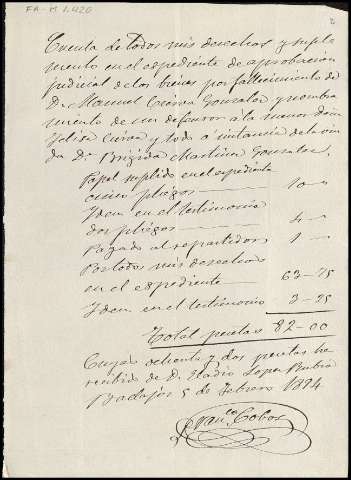 FA-M 1.426
Cuenta de todos mis derechos y suple
mento en el expediente de aprobacion
judicial de los bienes por fallecimiento de
D. Manuel Gonzalez y nombra
miento de un defensor a la menor
Felisa y todo a instancia de la viu
da Da Brigida Martinez Gonzalez.
Papel suplido en el expediente
cinco pliegos 10-"
Idem en el testimonio
dos pliegos 4-"
Pagado al repartidor 1-"
Por todos mis derechos
en el expediente 63-75
Idem en el testimonio 3-25
Total pesetas 82-00
Cuyas ochenta y dos pesetas he
recibido de D. Eladio Lopez Rubio
Badajoz 5 de Febrero 1894
Franco Cobos